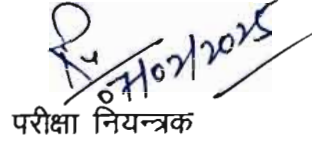 07/02/2025
परीक्षा नियन्त्रक